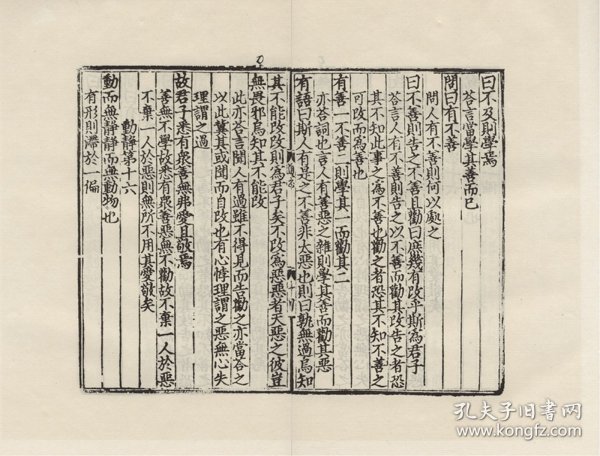 曰不及則學焉
答言當學其善而已
問曰有不善
問人有不善則何以處之
曰不善則告之不善且勸曰庶幾有改乎斯為君子
答言人有不善則告之以不善而勸其改告之者恐
其不知此事之為不善也勸之者恐其不知不善之
可改而為善也
有善一不善二則學其一而勸其二
亦答詞也言人有善惡之雜則學其善而勸其惡
有語曰斯人有是之不善非大惡也則曰孰無過焉知
其不能改改則為君子矣不改為惡惡者天惡之彼豈
無畏邪烏知其不能改
此亦答言聞人有過雖不得見而告勸之亦當答之
以此冀其或聞而自改也有心悖理謂之惡無心失
理謂之過
故君子悉有衆善無弗愛且敬焉
善無不學故悉有衆善惡無不勸故不棄一人於惡
不棄一人於惡則無所不用其愛敬矣
動靜第十六
動而無靜靜而無動物也
有形則滯於一偏
孔夫子旧书网
www.kongfz.com